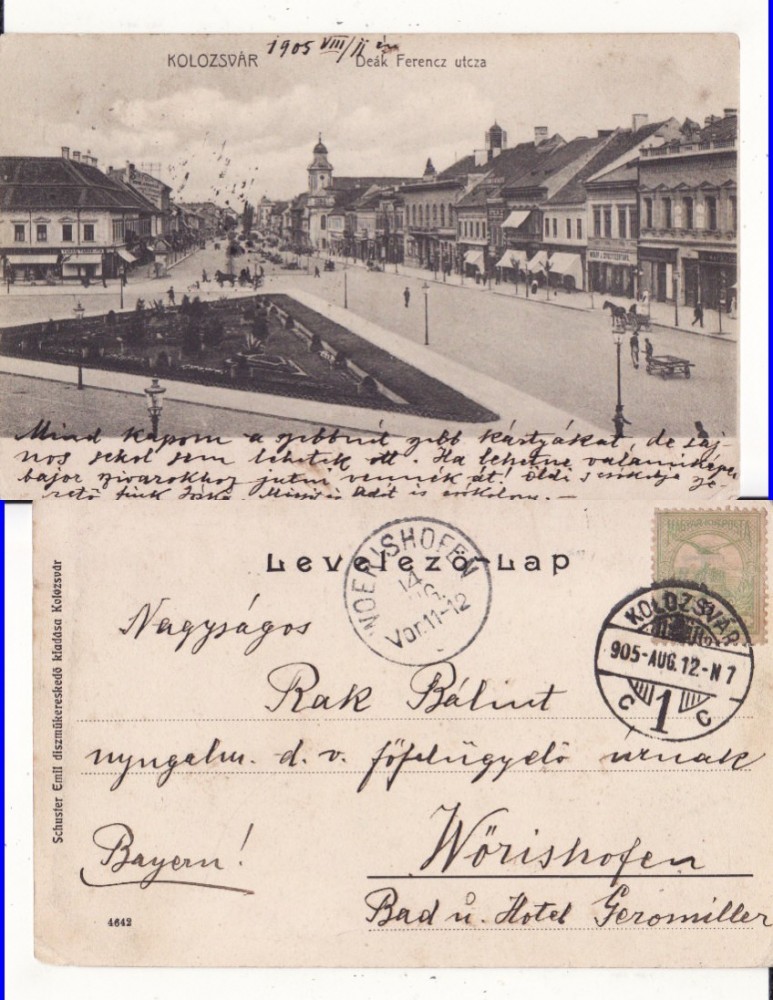 KOLOZSVÁR
1905 VIII/11 én
Deák Ferencz utcza
Mind kapom a szebbnél szebb kártyákat, de saj-
nos sehol sem lehetek ott. Ha lehetne valamiképen
bajor szivarokhoz jutni vennék át!
is csókolom. —
Levelező-Lap
WOERISHOFEN
14
AUG.
Vor. 11-12
MAGYAR KIR. POSTA
KOLOZSVÁR
905-AUG. 12-N 7
C 1 C
Nagyságos
Rak Bálint
nyugalm. d. v. főfelügyelő úrnak
Wörishofen
Bayern!
Bad u. Hotel Geromiller
Schuster Emil diszmükereskedő kiadása Kolozsvár
4642